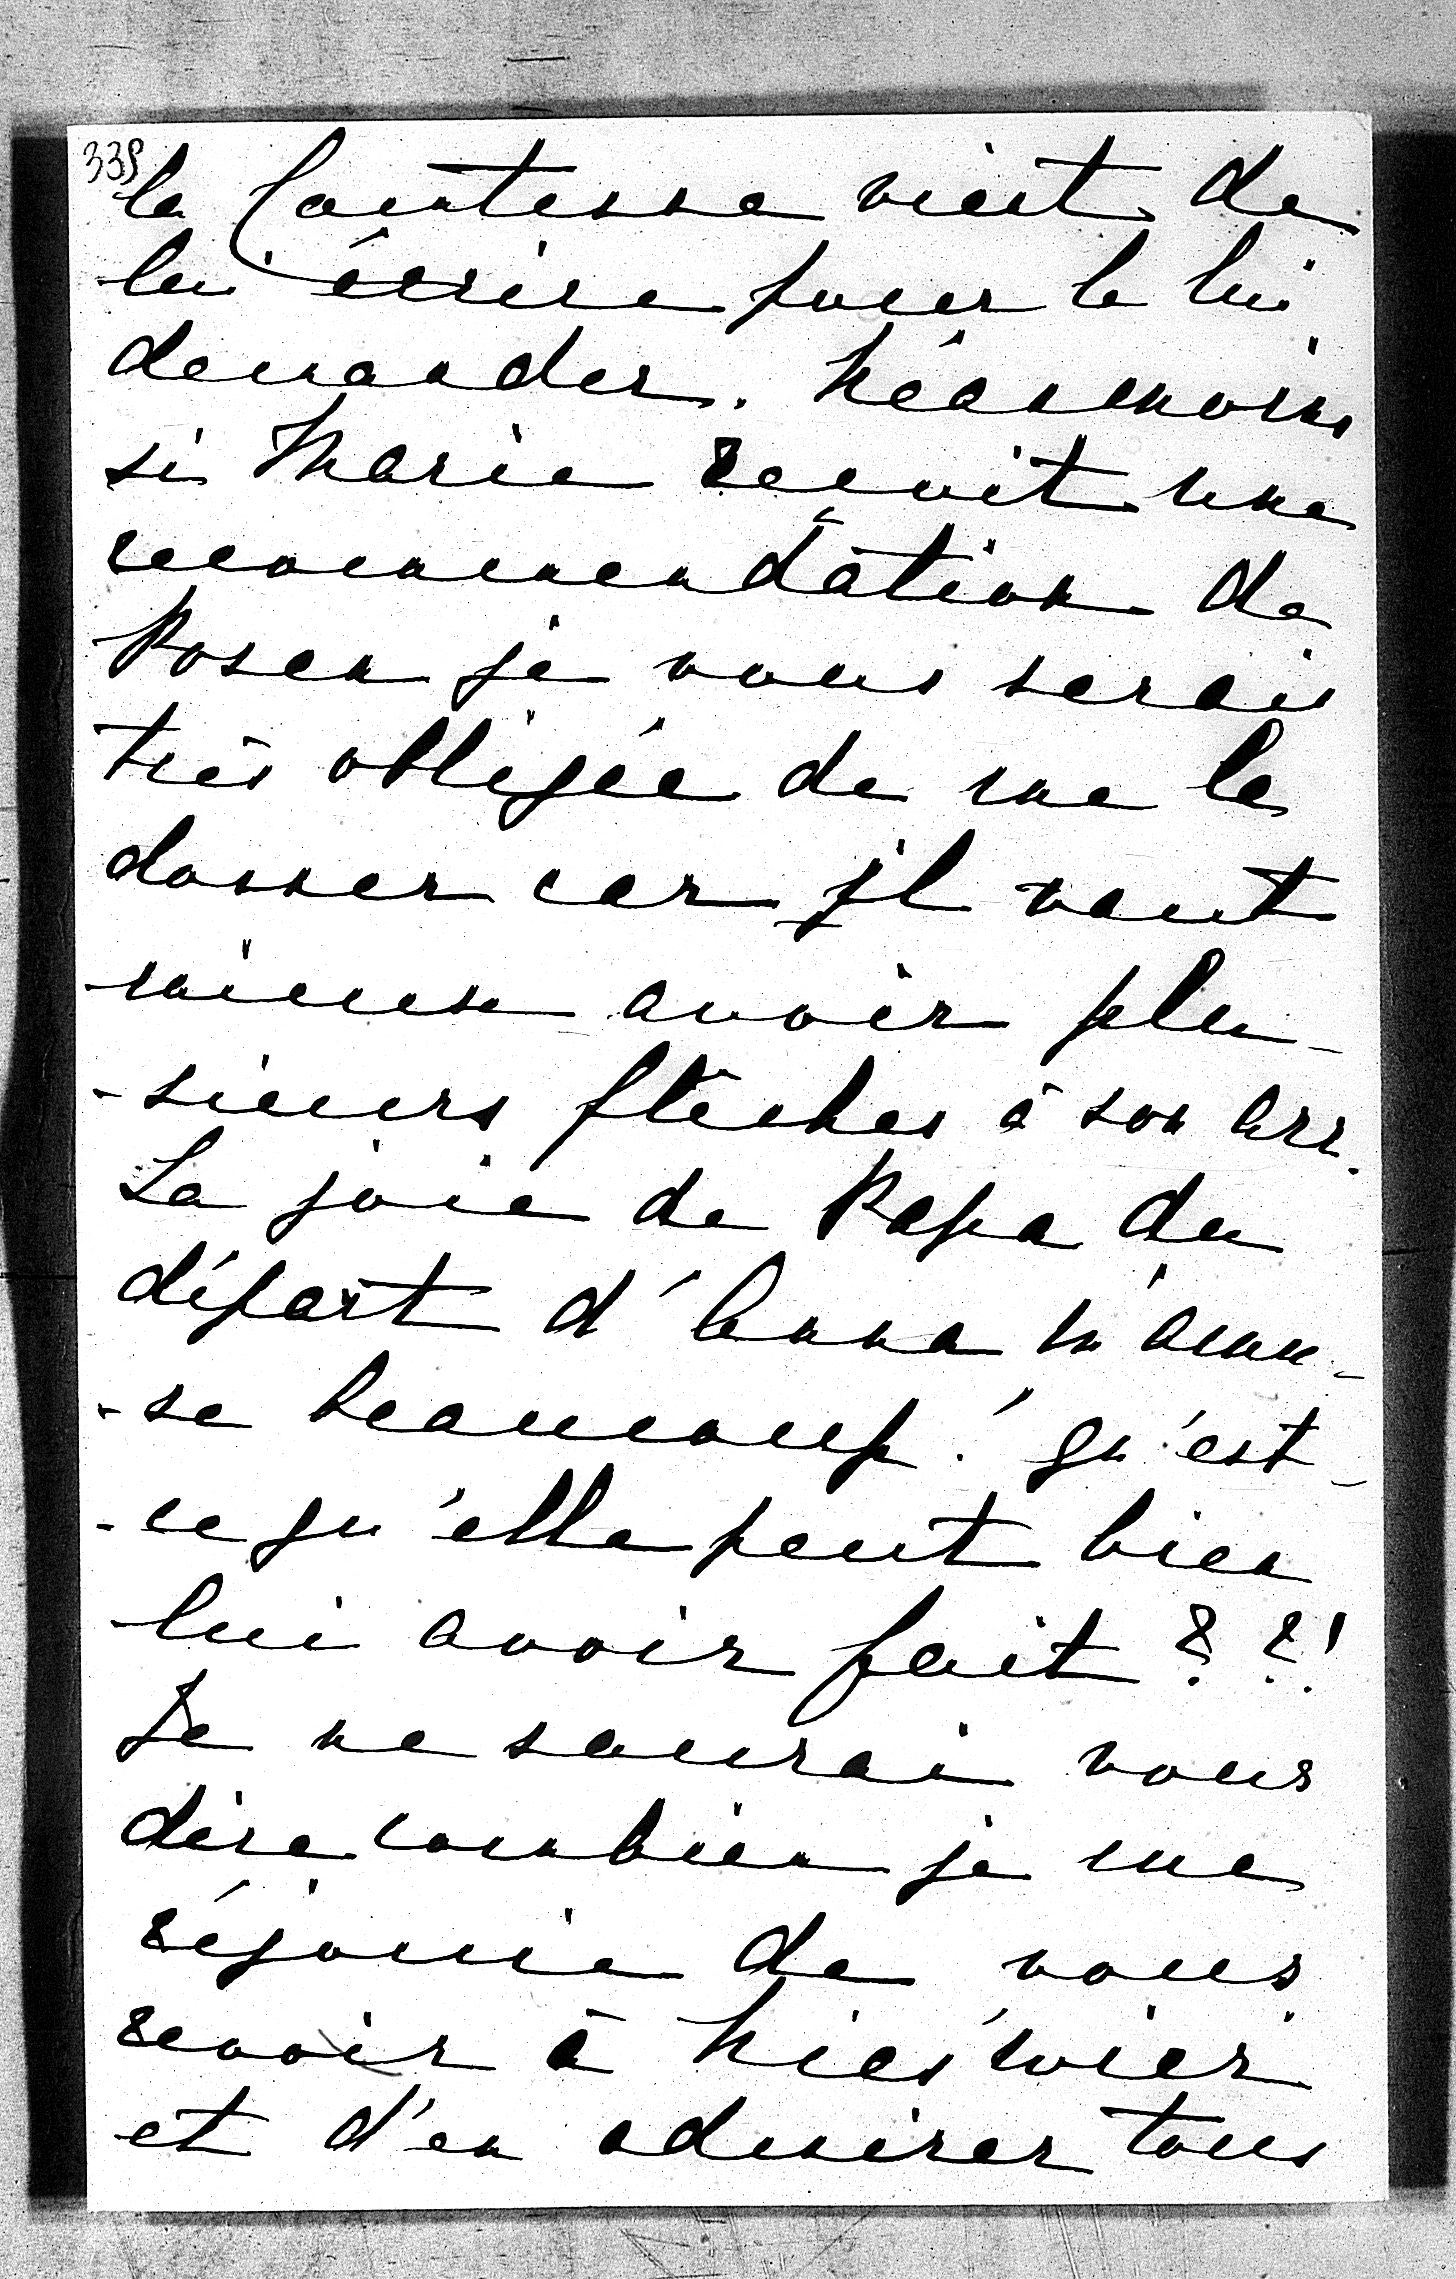 335
la Comtesse vient de
lui écrire pour le lui
demander. Néanmoins
si Marie reçoit une
recommendation de
Posen je vous serais
très obligée de me la
donner car il vaut
mieux avoir plu-
-sieurs flèches à son arc.
La joie de Papa du
départ d'Anna m'amu-
-se beaucoup! qu'est-
-ce qu'elle peut bien
lui avoir fait ? ?!
Je ne saurai vous
dire combien je me
réjouie de vous
revoir à Nieświeź
et d'en admirer tous